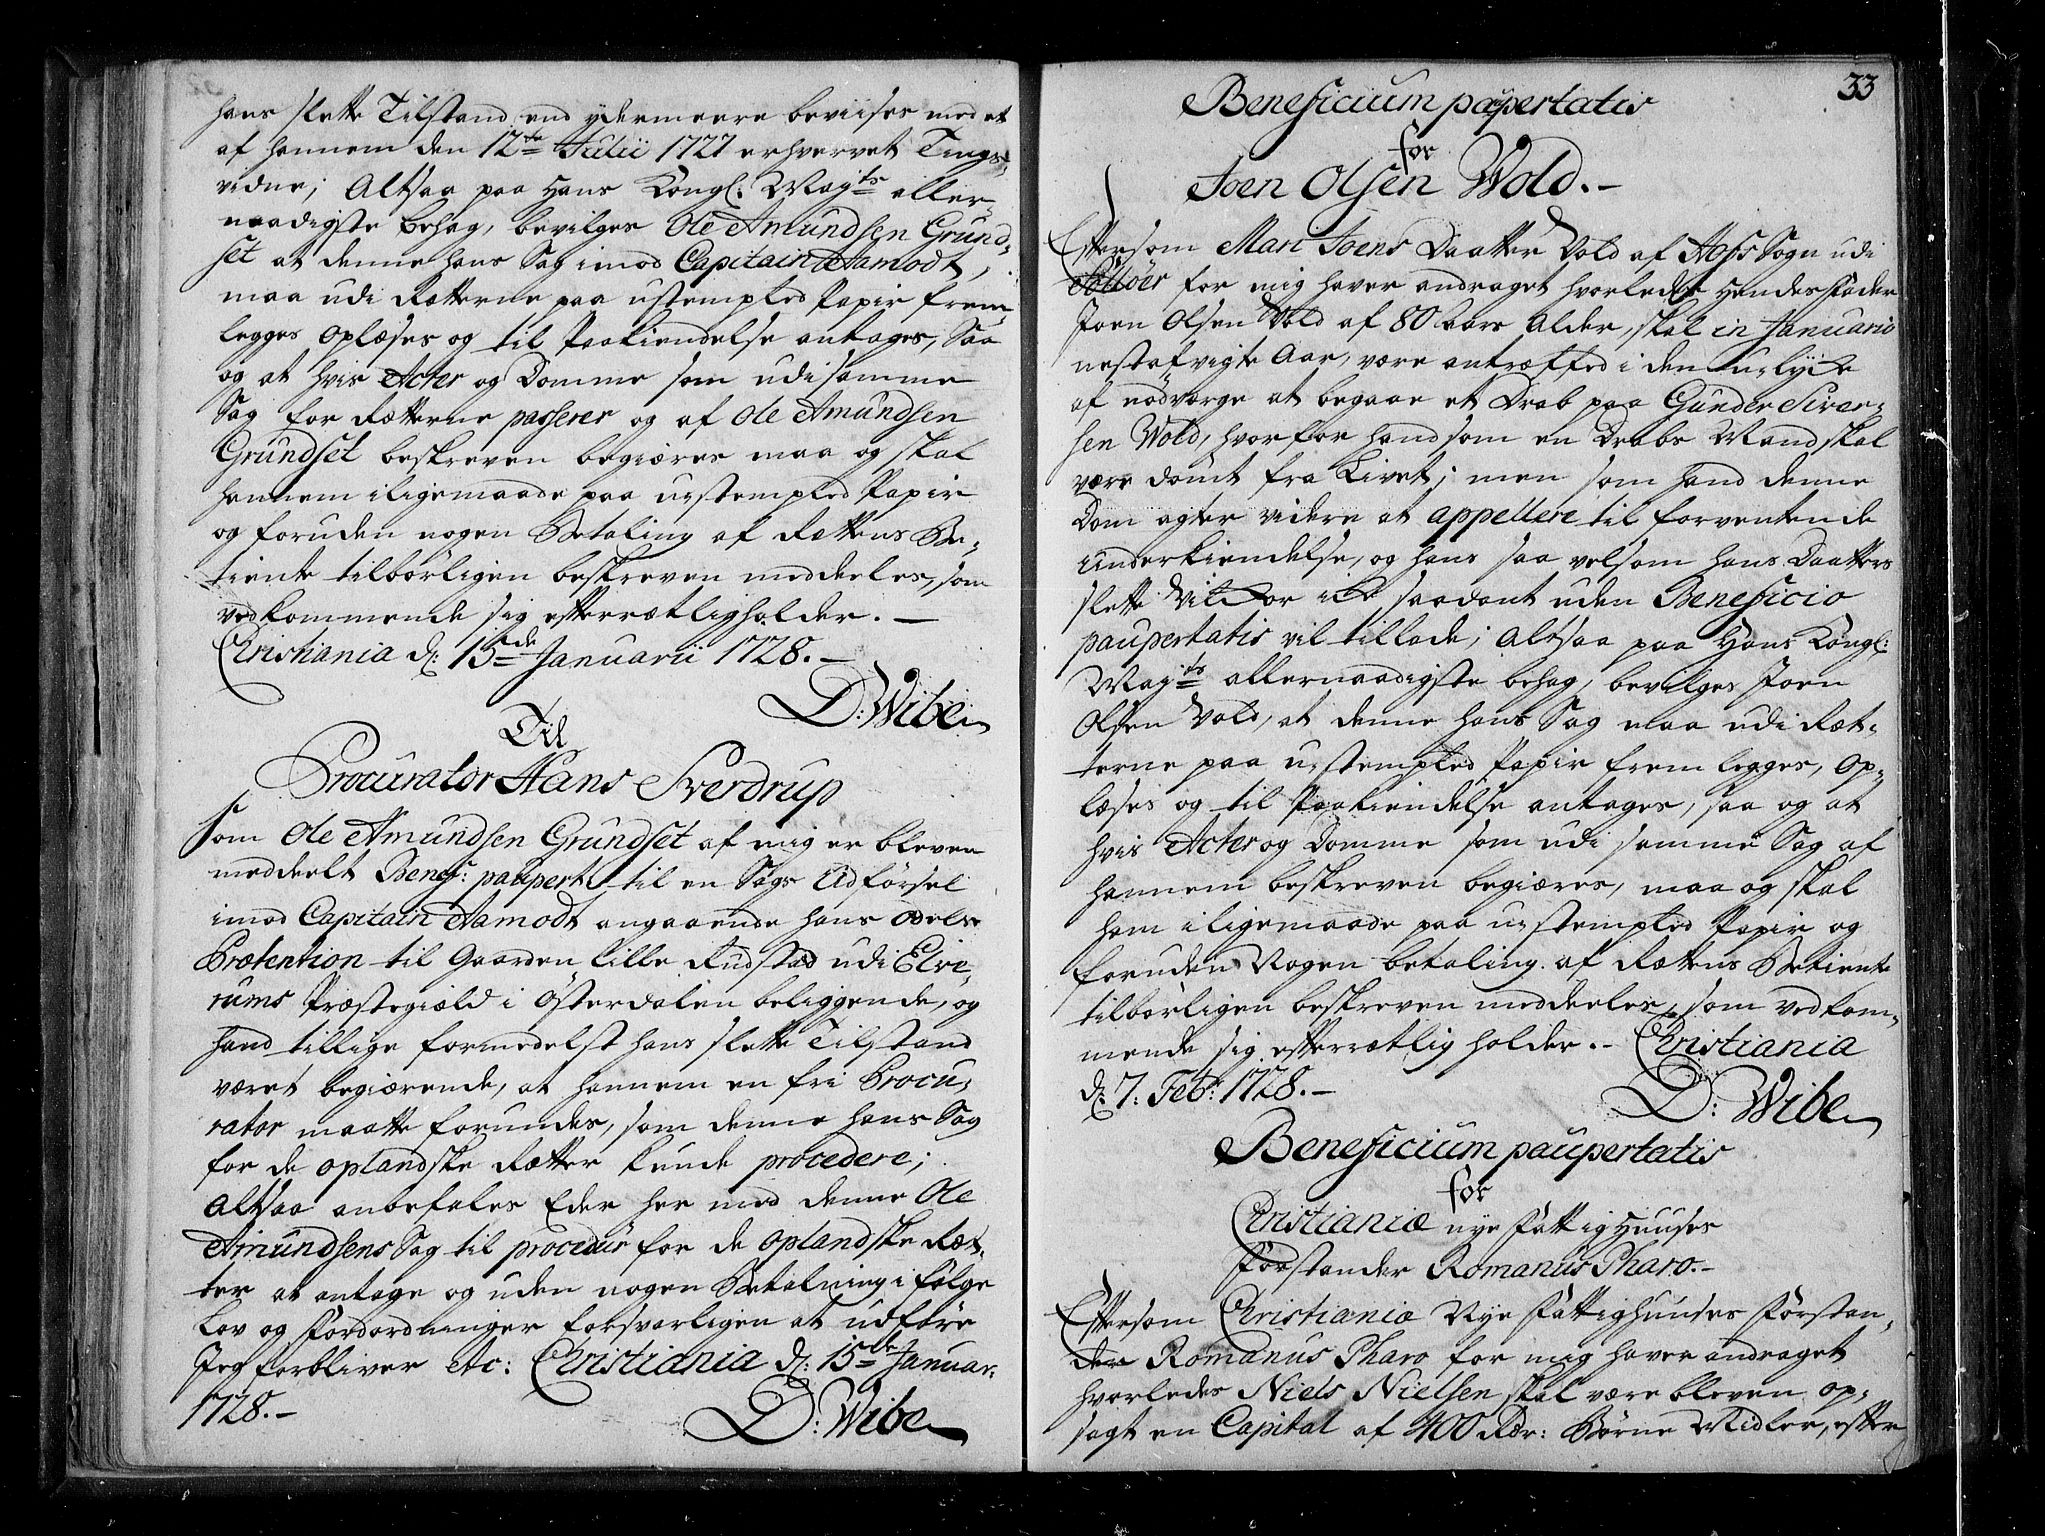 hans slette Tilstand end ydermeere beviises med et
af hannem den 12te Julii 1727 erhvervet Tings-
vidne; Altsaa paa Hans Kongl: Mayts aller-
naadigste behag, bevilges Ole Amundsen Grund-
set at denne hans Sag imod Capitain Aamodt,
maa udi Rætterne paa ustempled Papir frem-
legges oplæses og til Paakiendelse antages, Saa
og at hvis Acter og Domme som udi samme
Sag for Rætterne passerer og af Ole Amundsen
Grundset beskreven begiæres maa og skal
hannem iligemaade paa ustempled Papir
og foruden nogen Betaling af Rættens Be-
tiente tilbørligen beskreven meddeeles, som
vedkommende sig efterrætlig holder. —
Christiania d: 15de Januarii 1728. —
D: Wibe
Til
Procurator Hans Sverdrup
Som Ole Amundsen Grundset af mig er bleven
meddeelt Benef: paupert til en Sags Udførsel
imod Capitain Aamodt angaaende hans Odels
Prætention til Gaarden Lille Rudstad udi Elve-
rums Præstegiæld i Østerdalen beliggende, og
hand tillige formedelst hans slette Tilstand
været begiærende, at hannem en fri Procu-
rator maatte forundes, som denne hans Sag
for de oplandske Rætter kunde procedere;
Altsaa anbefales Eder her med denne Ole
Amundsens Sag til procedur for de oplandske Ræt-
ter at antage og uden nogen Betalning i følge
Lov og Forordninger forsvarligen at udføre
Jeg forbliver etc: Christiania d: 15de Januar:
1728. —
D: Wibe
33
Beneficium paupertatis
for
Joen Olsen Wold. —
Eftersom Mari Joens Daatter Vold af Aass Sogn udi
Solløer for mig haver andraget hvorledes Hendes Fader
Joen Olsen Vold af 80 aars Alder, skal in Januario
nestafvigte Aar, være antræffed i den ulyke
af nødværge at begaae et Drab paa Gunder Sivar-
sen Wold, hvorfor hand som en Drabs Mand skal
være dømt fra Livet; men som hand denne
Dom agter videre at appellere til forventende
Underkiendelse, og hans saa velsom hans Daatters
slette Vilkor ike saadant uden Beneficio
paupertatis vil tillade; Altsaa paa Hans Kongl:
Mayts allernaadigste behag, bevilges Joen
Olsen Vold, at denne hans Sag maa udi Ræt-
terne paa ustempled Papir frem legges, op-
læses og til Paakiendelse antages, saa og at
hvis Acter og Domme som udi samme Sag af
hannem beskreven begiæres, maa og skal
ham iligemaade paa ustempled Papir og
foruden Nogen betaling af Rættens Betiente
tilbørligen beskreven meddeeles, som vedkom-
mende sig efterrætlig holder. — Christiania
d: 7: Febr: 1728. —
D: Wibe
Beneficium paupertatis
for
Christianiæ nye Fattig Huuses
Forstander Romanus Pharo. —
Eftersom Christiania Nye Fattighuuses Forstan-
der Romanus Pharo for mig haver andraget
hvorledes Niels Nielsen skal være bleven op-
sagt en Capital af 400 Rdr: Børne Midler, efter